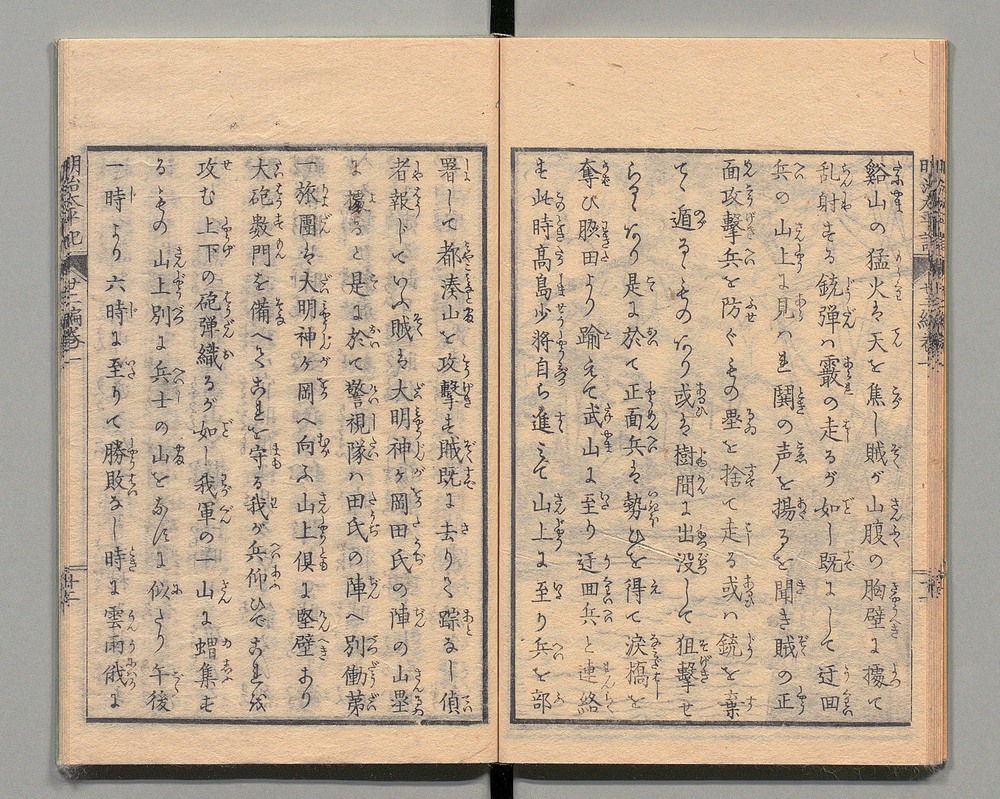 谿山の猛火は天を焦し賊が山腹の胸壁に擾て
乱射する銃弾ハ霰の走るが如し既にして迂回
兵の山上に見ハれ鬨の声を揚るを聞き賊の正
面攻撃兵を防ぐもの塁を捨て走る或ハ銃を棄
て遁るゝものあり或は樹間に出没して狙撃せ
らるゝあり是に於て正面兵は勢ひを得て涙橋を
奪ひ
豚田より踰えて武山に至り迂回兵と連絡
も此時高島少将自ら進ミて山上に至り兵を部
署して都湊山を攻撃も賊既に去りて踪なし偵
者報じていふ賊は大明神ヶ岡田氏の陣の山塁
に擾ると是に於て警視隊ハ田氏の陣へ別働第
一旅團は大明神ヶ岡へ向ふ山上倶に堅壁あり
大砲数門を備へてこれを守る我が兵仰ひでこれを
攻む上下の砲弾織るが如し我軍の一山に蝟集も
るもの山上別に兵士の山をなすに似たり午後
一時より六時に至りて勝敗なし時に雲雨俄に
明治太平記
廿二編巻一
十二